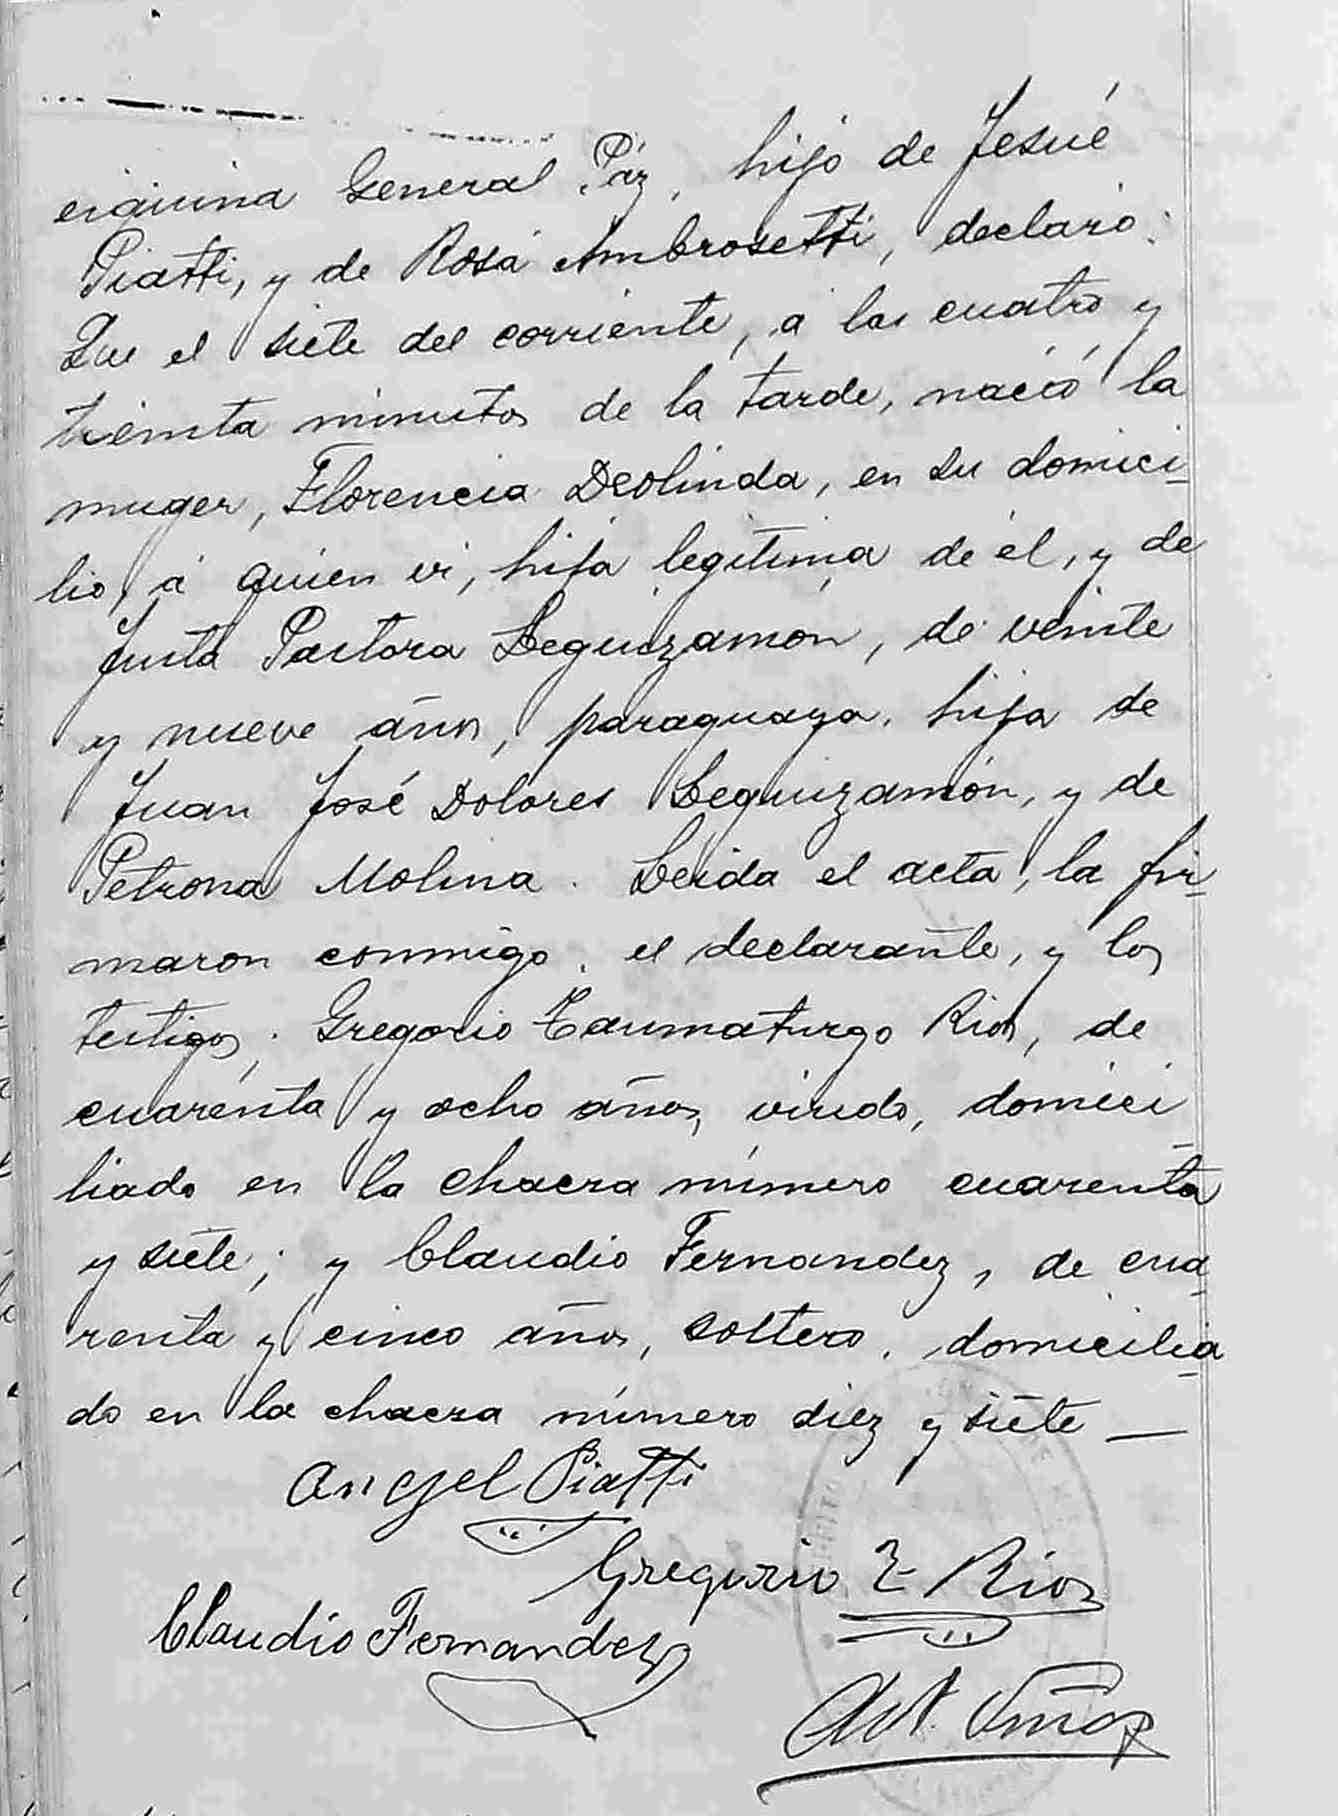 esquina General Páz, hijo de Jesué
Piatti, y de Rosa Ambrosetti, declaró:
Que el siete del corriente, á las cuatro y
treinta minutos de la tarde, nació la
muger, Florencia Deolinda, en su domici-
lio, á quien vi, hija legítima de él, y de
Justa Pastora Leguizamón, de veinte
y nueve años, paraguaya, hija de
Juan José Dolores Leguizamón, y de
Petrona Molina. Leida el acta, la fir-
maron conmigo, el declarante, y los
testigos; Gregorio Taumaturgo Rios, de
cuarenta y ocho años, viudo, domici-
liado en la chacra número cuarenta
y siete; y Claudio Fernandez, de cua-
renta y cinco años, soltero, domicilia-
do en la chacra número diez y siete —
Angel Piatti
Gregorio T Rios
Claudio Fernandez